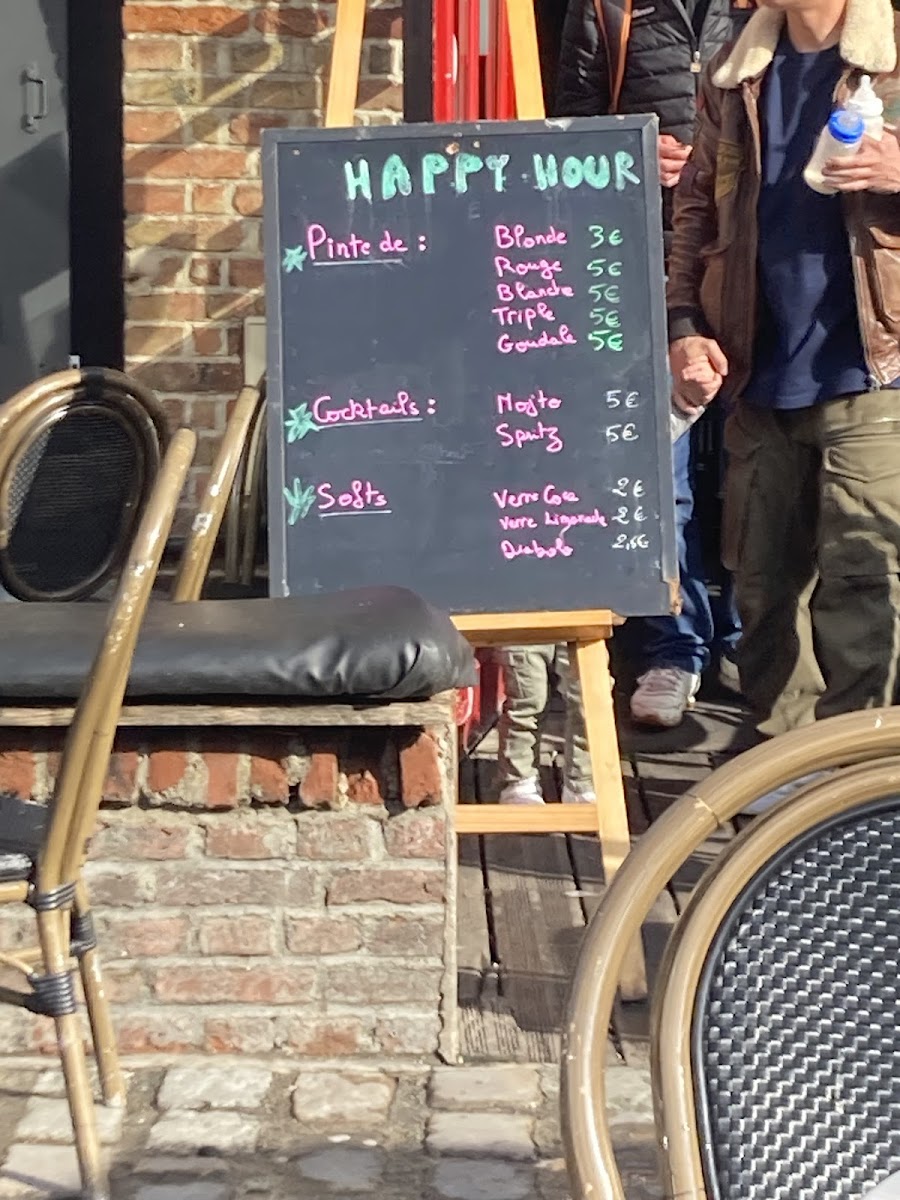 HAPPY HOUR
Pinte de : Blonde 3€
Rouge 5€
Blanche 5€
Triple 5€
Goudale 5€
Cocktails : Mojto 5€
Spritz 5€
Softs Verre Coca 2€
Verre Limonade 2€
Diabolo 2,5€